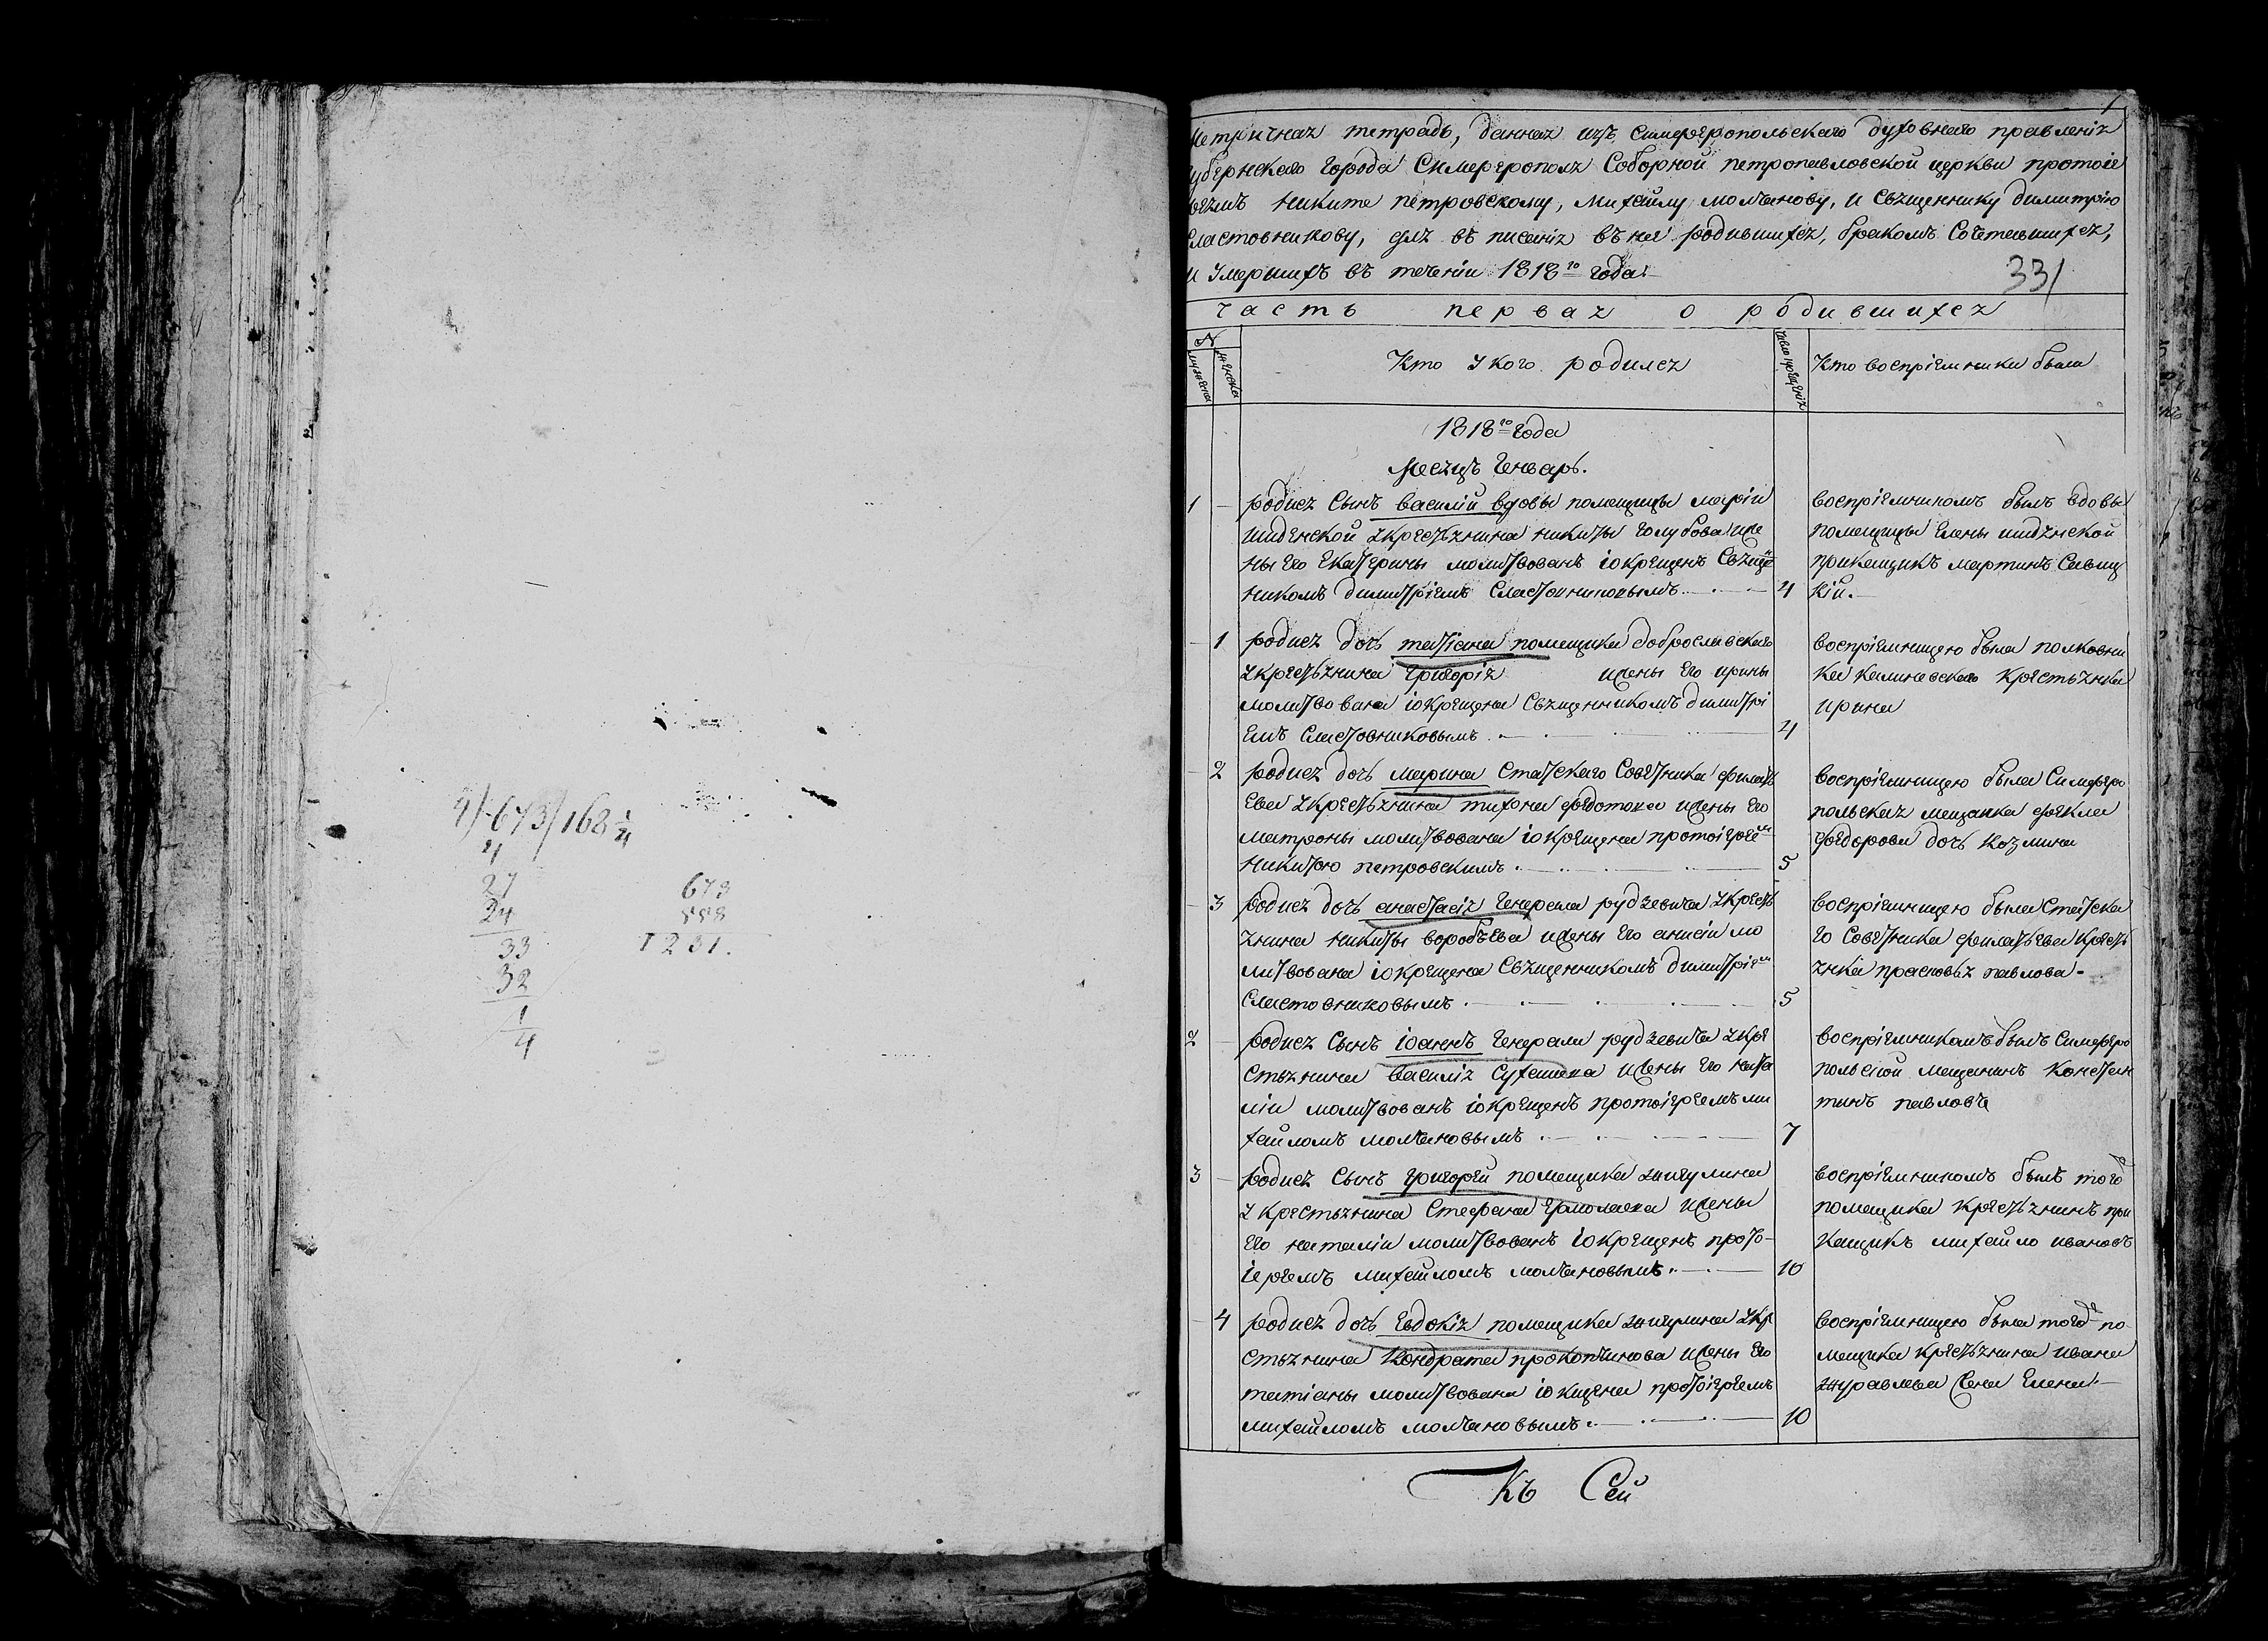 4) 673 / 168 1/4
4
27
24
33
32
1
4
673
558
1231.
1
Метричная тетрадь, данная изъ Симферопольскаго духовнаго правленія
губернскаго города Симферополя Соборной петропавловской церкви протоіе
реямъ никите петровскому, михайлу молчанову, и Священнику димитрію
Сластовникову, для вписанія въ ней родившихся, бракомъ Сочетавшихся,
и умершихъ въ теченіи 1818го года.
331
часть первая о родившихся
№
мужеска
женска
Кто у кого родился
число крещенія
Кто воспріемники были
1818го года
Месяцъ Генварь.
1 родися Сынъ василій вдовы помещицы маріи
шидянской у крестьянина никиты голубова жѐ
ны его екатерины молитвованъ и окрещенъ Священ
никомъ димитріемъ Сластовниковымъ 4
воспріемникомъ былъ вдовы
помещицы елены шидянской
прикащикъ мартинъ Савиц
кій.
1 родися дочь татіана помещика доброславскаго
у крестьянина григорія жены его ирины
молитвована і окрещена Священникомъ димитрі
емъ Сластовниковымъ 4
воспріемницею была полковни
ка калиновскаго крестьянка
ирина
2 родися дочь марина Статскаго Советника филать
ева у крестьянина тихона федотова жены его
матроны молитвована і окрещена протоіереем
никитою петровскимъ 5
воспріемницею была Симферо
польская мещанка фекла
федорова дочь козмина
3 родися дочь анастасія Генерала рудзевича у кресть
янина никиты воробьева жены его анисіи мо
литвована і окрещена Священникомъ димитріем
Сластовниковымъ 5
воспріемницею была Статска
го Советника филатьева кресть
янка прасковья павлова
2 родися Сынъ іоаннъ Генерала рудзевича у кре
стьянина василія Сухашева жены его ната
ліи молитвованъ і окрещенъ протоіереемъ ми
хайломъ молчановымъ 7
воспріемникомъ былъ Симферо
польской мещанинъ констан
тинъ павловъ
3 родися Сынъ григорій помещика жигулина
у крестьянина Стефана ермолаева жены
его наталіи молитвованъ і окрещенъ прото-
іереемъ михайломъ молчановымъ 10
воспріемникомъ былъ того
помещика крестьянинъ при
кащикъ михайло ивановъ
4 родися дочь Евдокія помещика жигулина у кре
стьянина Кондрата прокопчикова жены его
татіаны молитвована і окщена протоіереемъ
михайломъ молчановымъ 10
воспріемницею была того по
мещика крестьянина ивана
журавлева жена елена
Къ Сей